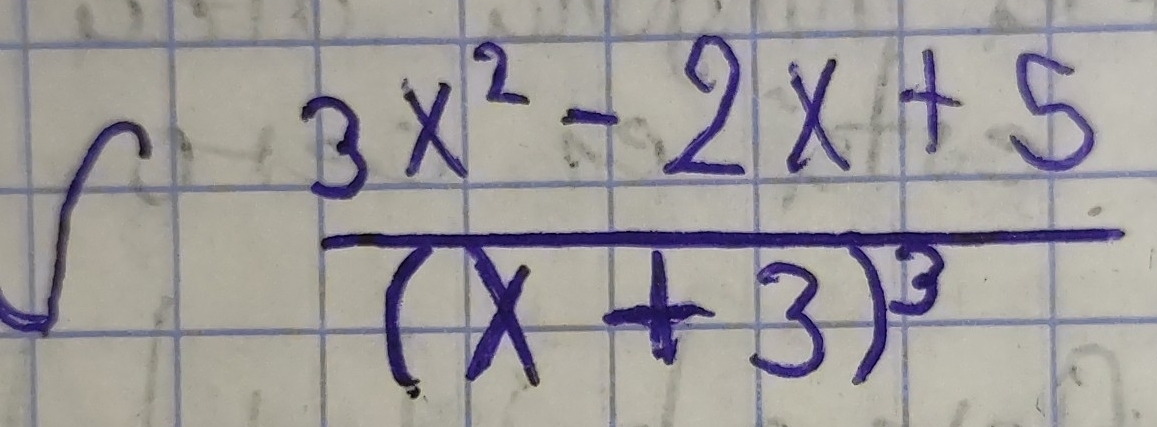 ∫ (3x² - 2x + 5) / (x + 3)³